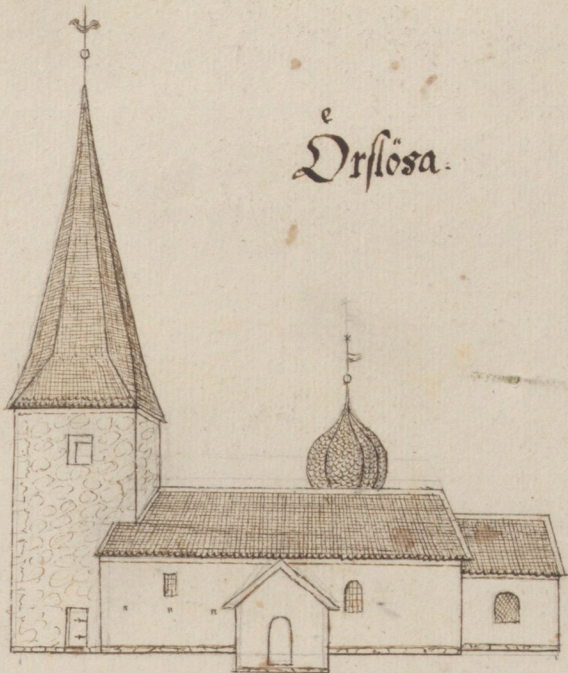 Örslösa.